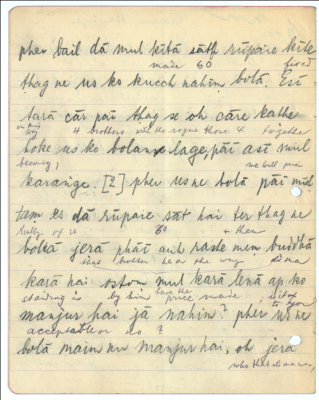 pher bail dā mul kītā sāṭh rūpaie kīte
made 60 fixed
thag ne us ko kucch nahīm bolā. Esī
tarā cār pāī thag se oh cāre kaṭhe
4 brothers were the rogue those 4 together
hoke us ko bolan lage, pāī asī mul
we will price
karānge. [2] pher us ne bolā pāī mul
tam es dā rūpaie sāṭ hai ter thag ne
bully of is 60 + then
boliā jerā phāī aul raste mem buḍḍhā
said brother near the way
karā hai oston mul karā lenā ap ko
standing is by him price made to you
manjur hai jā nahīm? pher us ne
acceptable or no?
bolā maim nu manjur hai, oh jera
who that